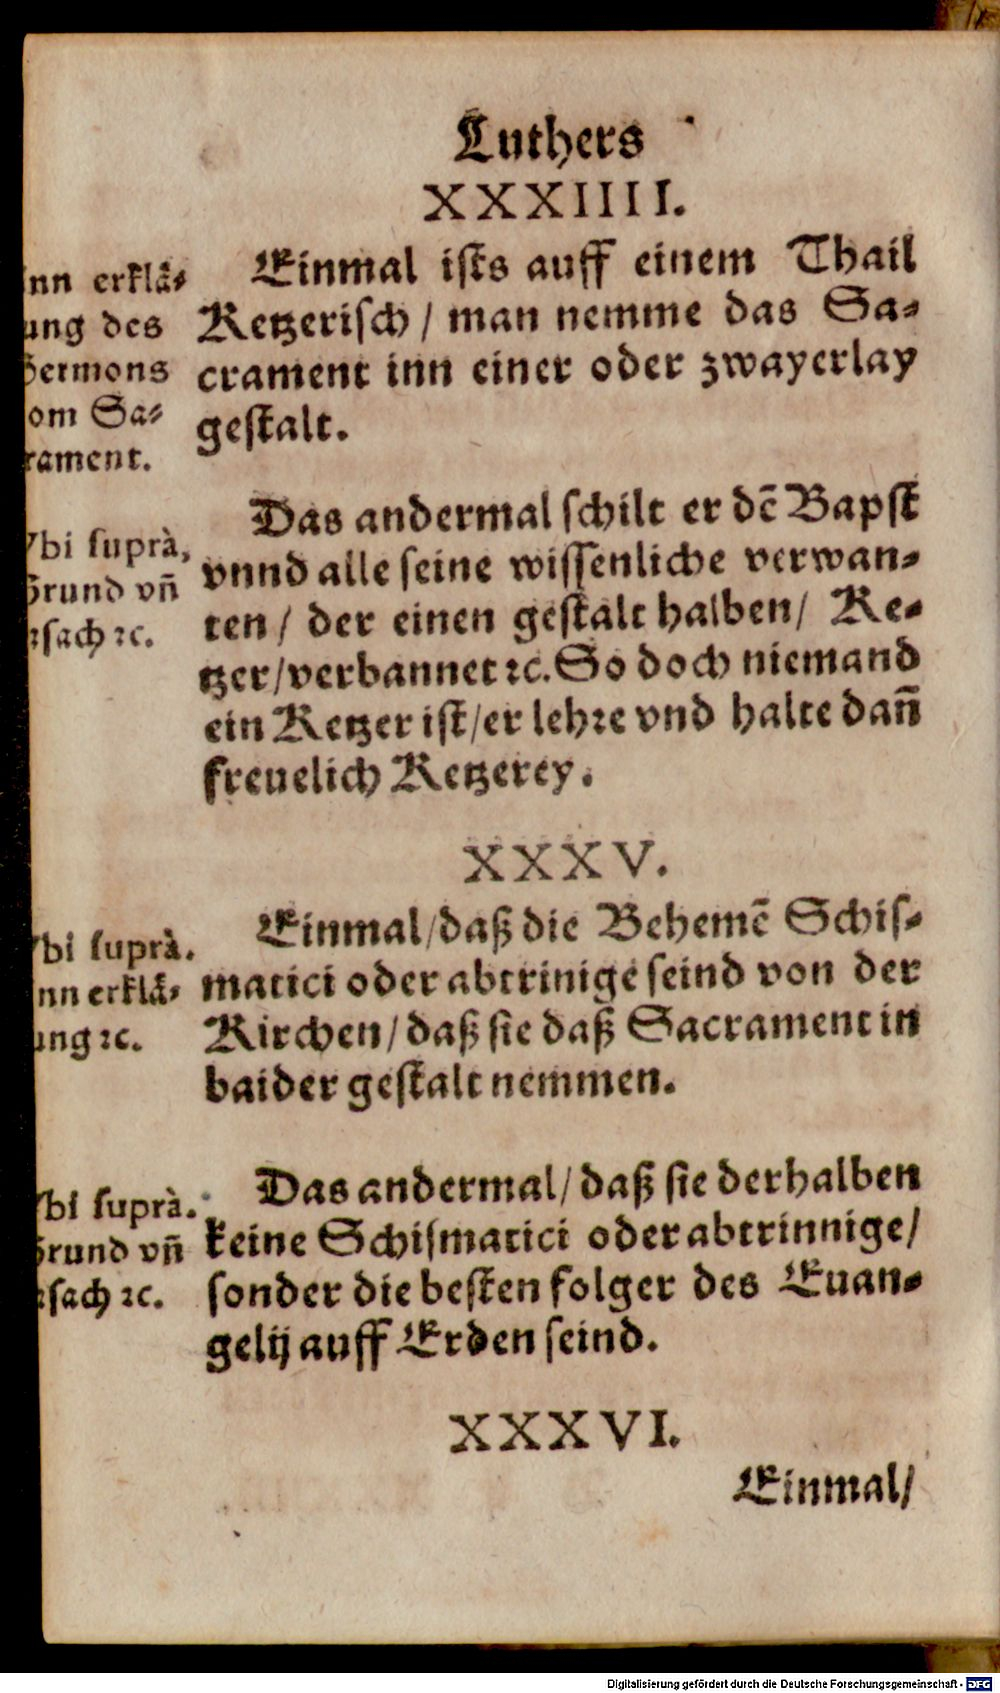 Luthers
XXXIIII.
Einmal ists auff einem Thail
Ketzerisch / man nemme das Sa-
crament inn einer oder zwayerlay
gestalt.
nn erklä-
ung des
Sermons
om Sa-
rament.
Das andermal schilt er dē Bapst
vnnd alle seine wissenliche verwan-
ten / der einen gestalt halben / Ke-
tzer / verbannet ꝛc. So doch niemand
ein Ketzer ist / er lehre vnd halte dañ
freuelich Ketzerey.
Vbi suprà,
Grund vñ
rsach ꝛc.
XXXV.
Einmal / daß die Behemē Schis-
matici oder abtrinige seind von der
Kirchen / daß sie daß Sacrament in
baider gestalt nemmen.
Vbi suprà.
nn erklä-
ung ꝛc.
Das andermal / daß sie derhalben
keine Schismatici oder abtrinnige /
sonder die besten folger des Euan-
gelij auff Erden seind.
Vbi suprà.
Grund vñ
rsach ꝛc.
XXXVI.
Einmal /
Digitalisierung gefördert durch die Deutsche Forschungsgemeinschaft - DFG